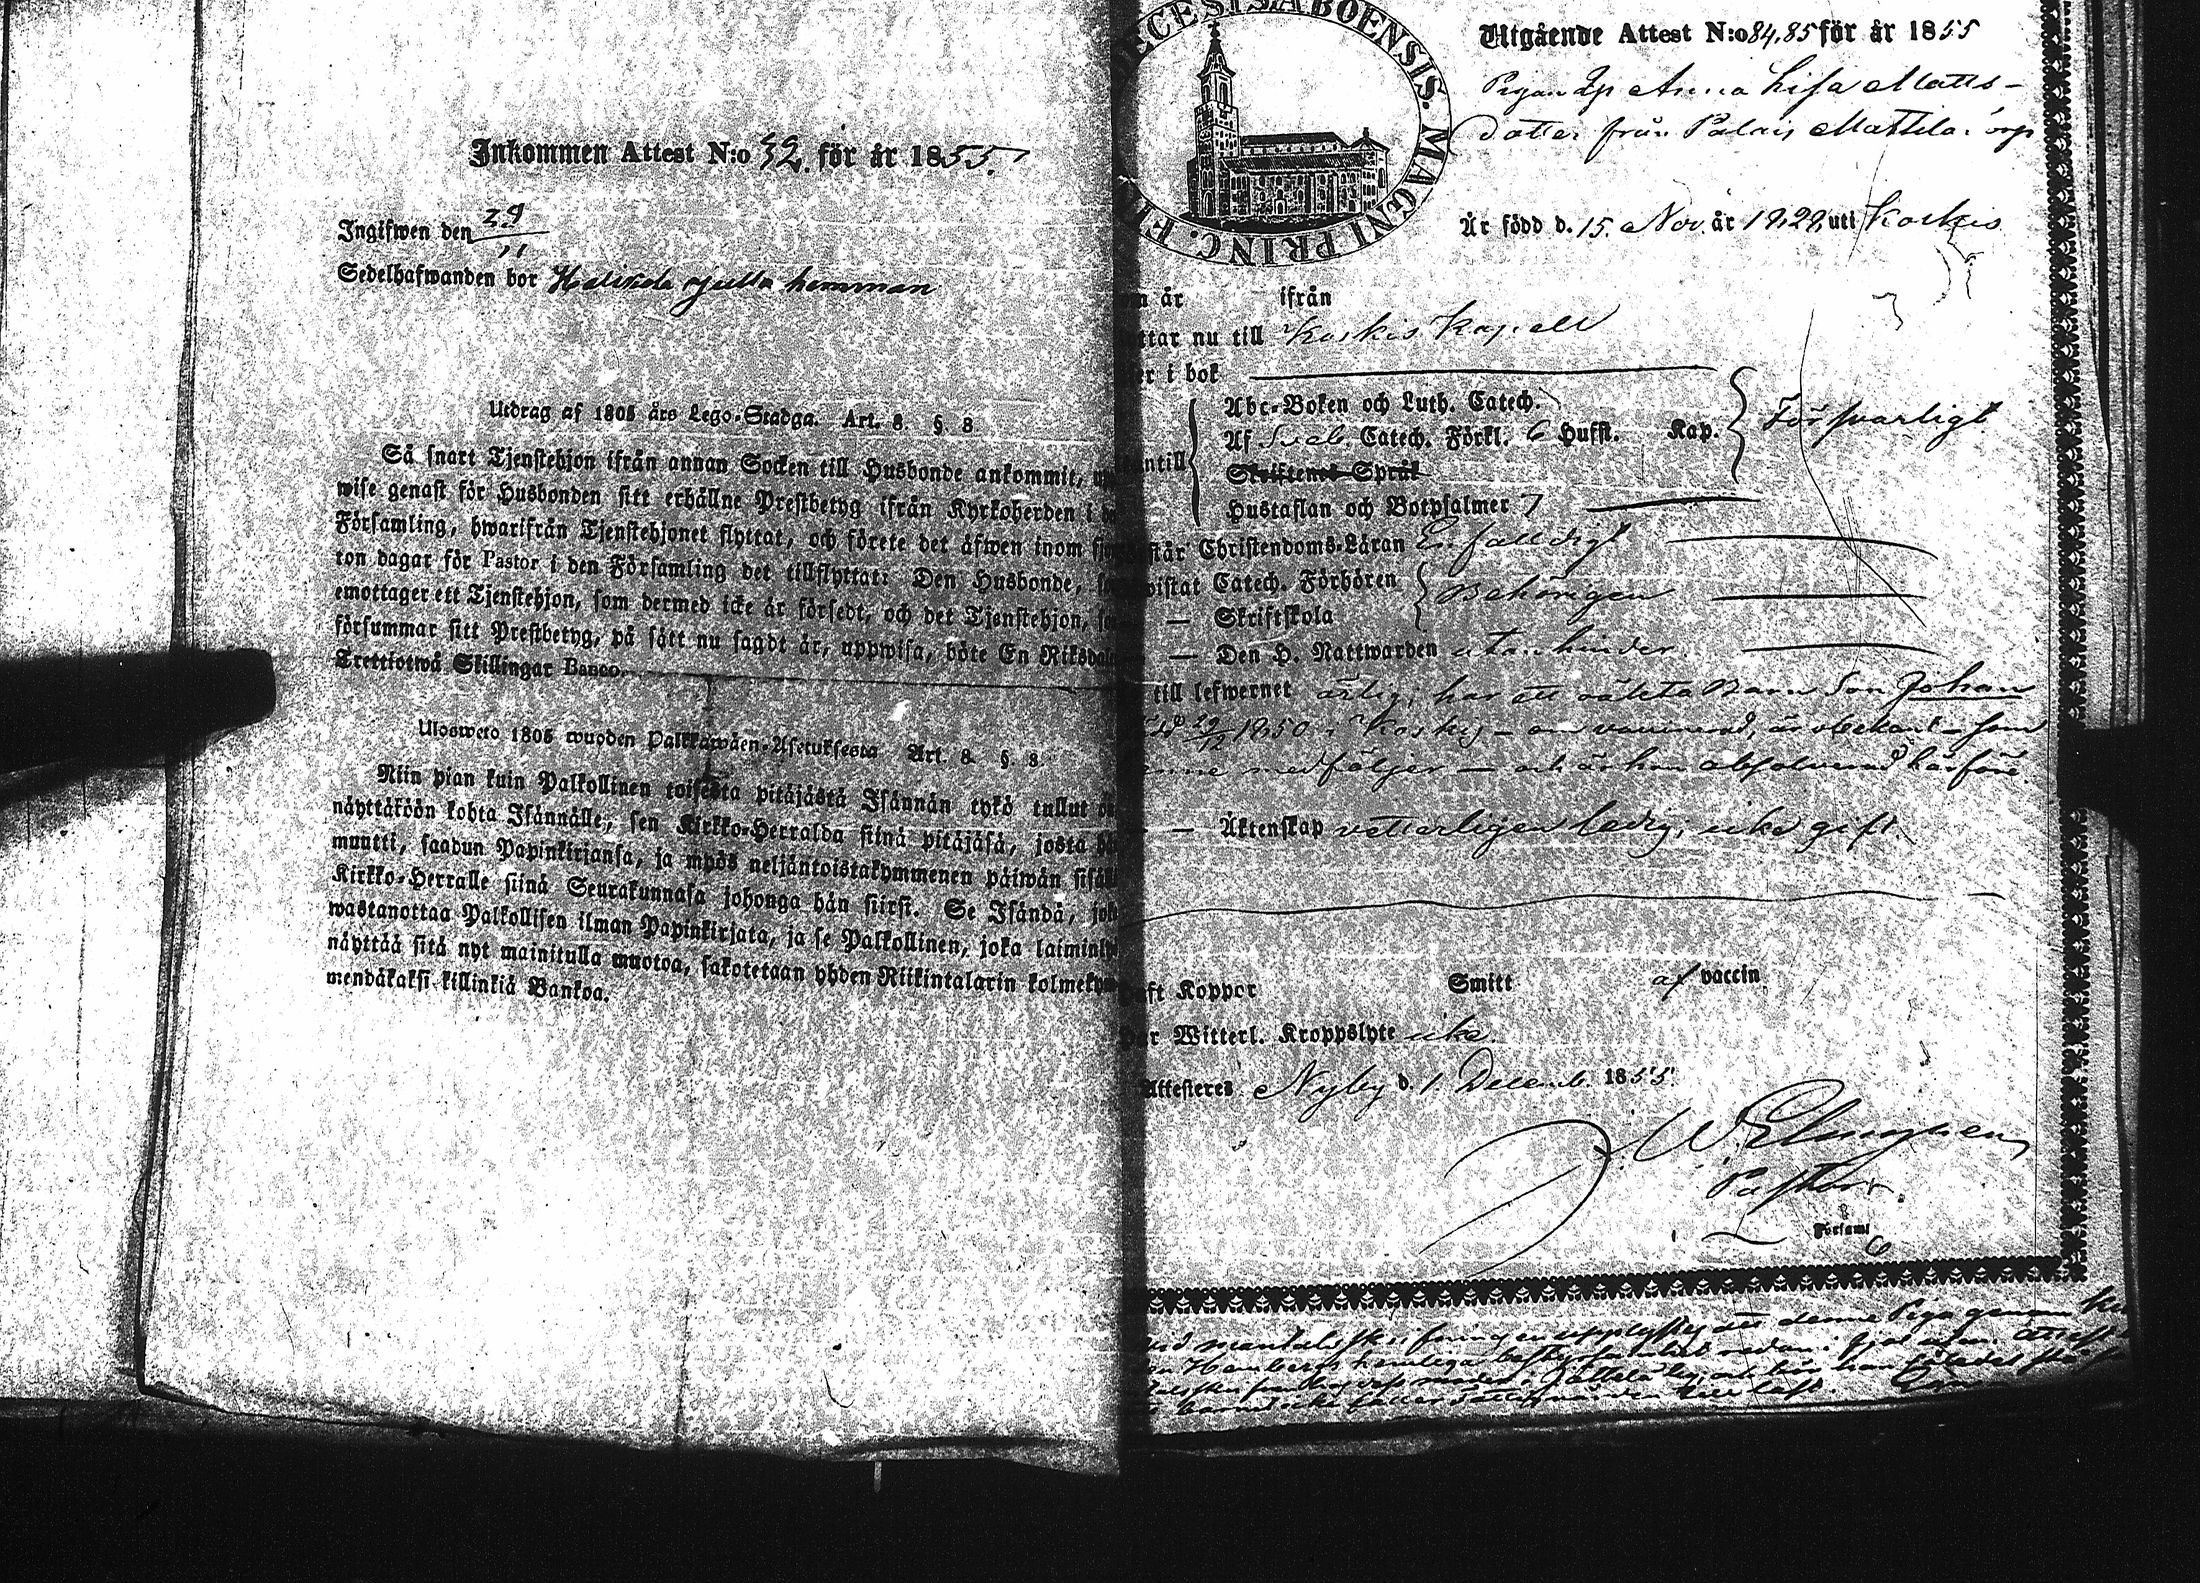 Inkommen Attest N:o 32. för år 1855.
Ingifwen den 29/11
Sedelhafwanden bor Halikola Julla hemman
Utdrag af 1805 års Lego-Stadga. Art. 8. §. 8
Så snart Tjenstehjon ifrån annan Socken till Husbonde ankommit, upp
wise genast för Husbonden sitt erhållne Prestbetyg ifrån Kyrkoherden i
Församling, hwarifrån Tjenstehjonet flyttat, och förete det äfwen inom fjor
ton dagar för Pastor i den Församling det tillflyttat: Den Husbonde,
emottager ett Tjenstehjon, som dermed icke är försedt, och det Tjenstehjon,
försummar sitt Prestbetyg, på sått nu sagdt är, uppwisa, böte En Riksdal
Trettiotwå Skillingar Banco.
Ulosweto 1805 wuoden Palkkawäen-Asetuksesta Art. 8. §. 8.
Niin pian kuin Palkollinen toisesta pitäjästä Isännän tykö tullut
näyttäköön kohta Isännälle, sen Kirkko-Herralda siinä pitäjäsä, josta
muutti, saadun Papinkirjansa, ja myös neljäntoistakymmenen päiwän sisä
Kirkko-Herralle siinä Seurakunnasa johonga hän siirsi. Se Isändä, jo
wastanottaa Palkollisen ilman Papinkirjata, ja se Palkollinen, joka laimin
näyttää sitä nyt mainitulla muotoa, sakotetaan yhden Riikintalarin kolmeky
mendäkaksi killinkiä Bankoa.
ECESIS ABOENSIS. MAGNI PRINC. F
Utgående Attest N:o 84,85 för år 1855
Pigan Anna Lisa Matts-
dotter från Palais Mattila
Är född d. 15. Nov. år 1828 uti Koskis
år ifrån
ttar nu till Koskis Kapell
r i bok
Abc-Boken och Luth. Catech.
Af Sveb. Catech. Förkl. 6 Hufst. Kap. Försvarligt
antill
Skriftenes Språk
Hustaflan och Botpsalmer 7
står Christendoms-Läran Enfaldigt
wistat Catech. Förhören Behörigen
— Skriftskola
— Den H. Nattwarden utan hinder.
till lefwernet ärlig; har ett oäkta Barn Son Johan
född 29/12 1850 i Koskis – om vaccinerad, är obekant – som
enne medföljer – och är hon absolverad härföre.
— Äktenskap vetterligen ledig, icke gift.
aft Koppor Smitt af vaccin
ar Witterl. Kroppslyte icke.
Attesteres Nyby d. 1 Decemb. 1855.
W. Elmgren
Pastor
Församl
denne Piga genom